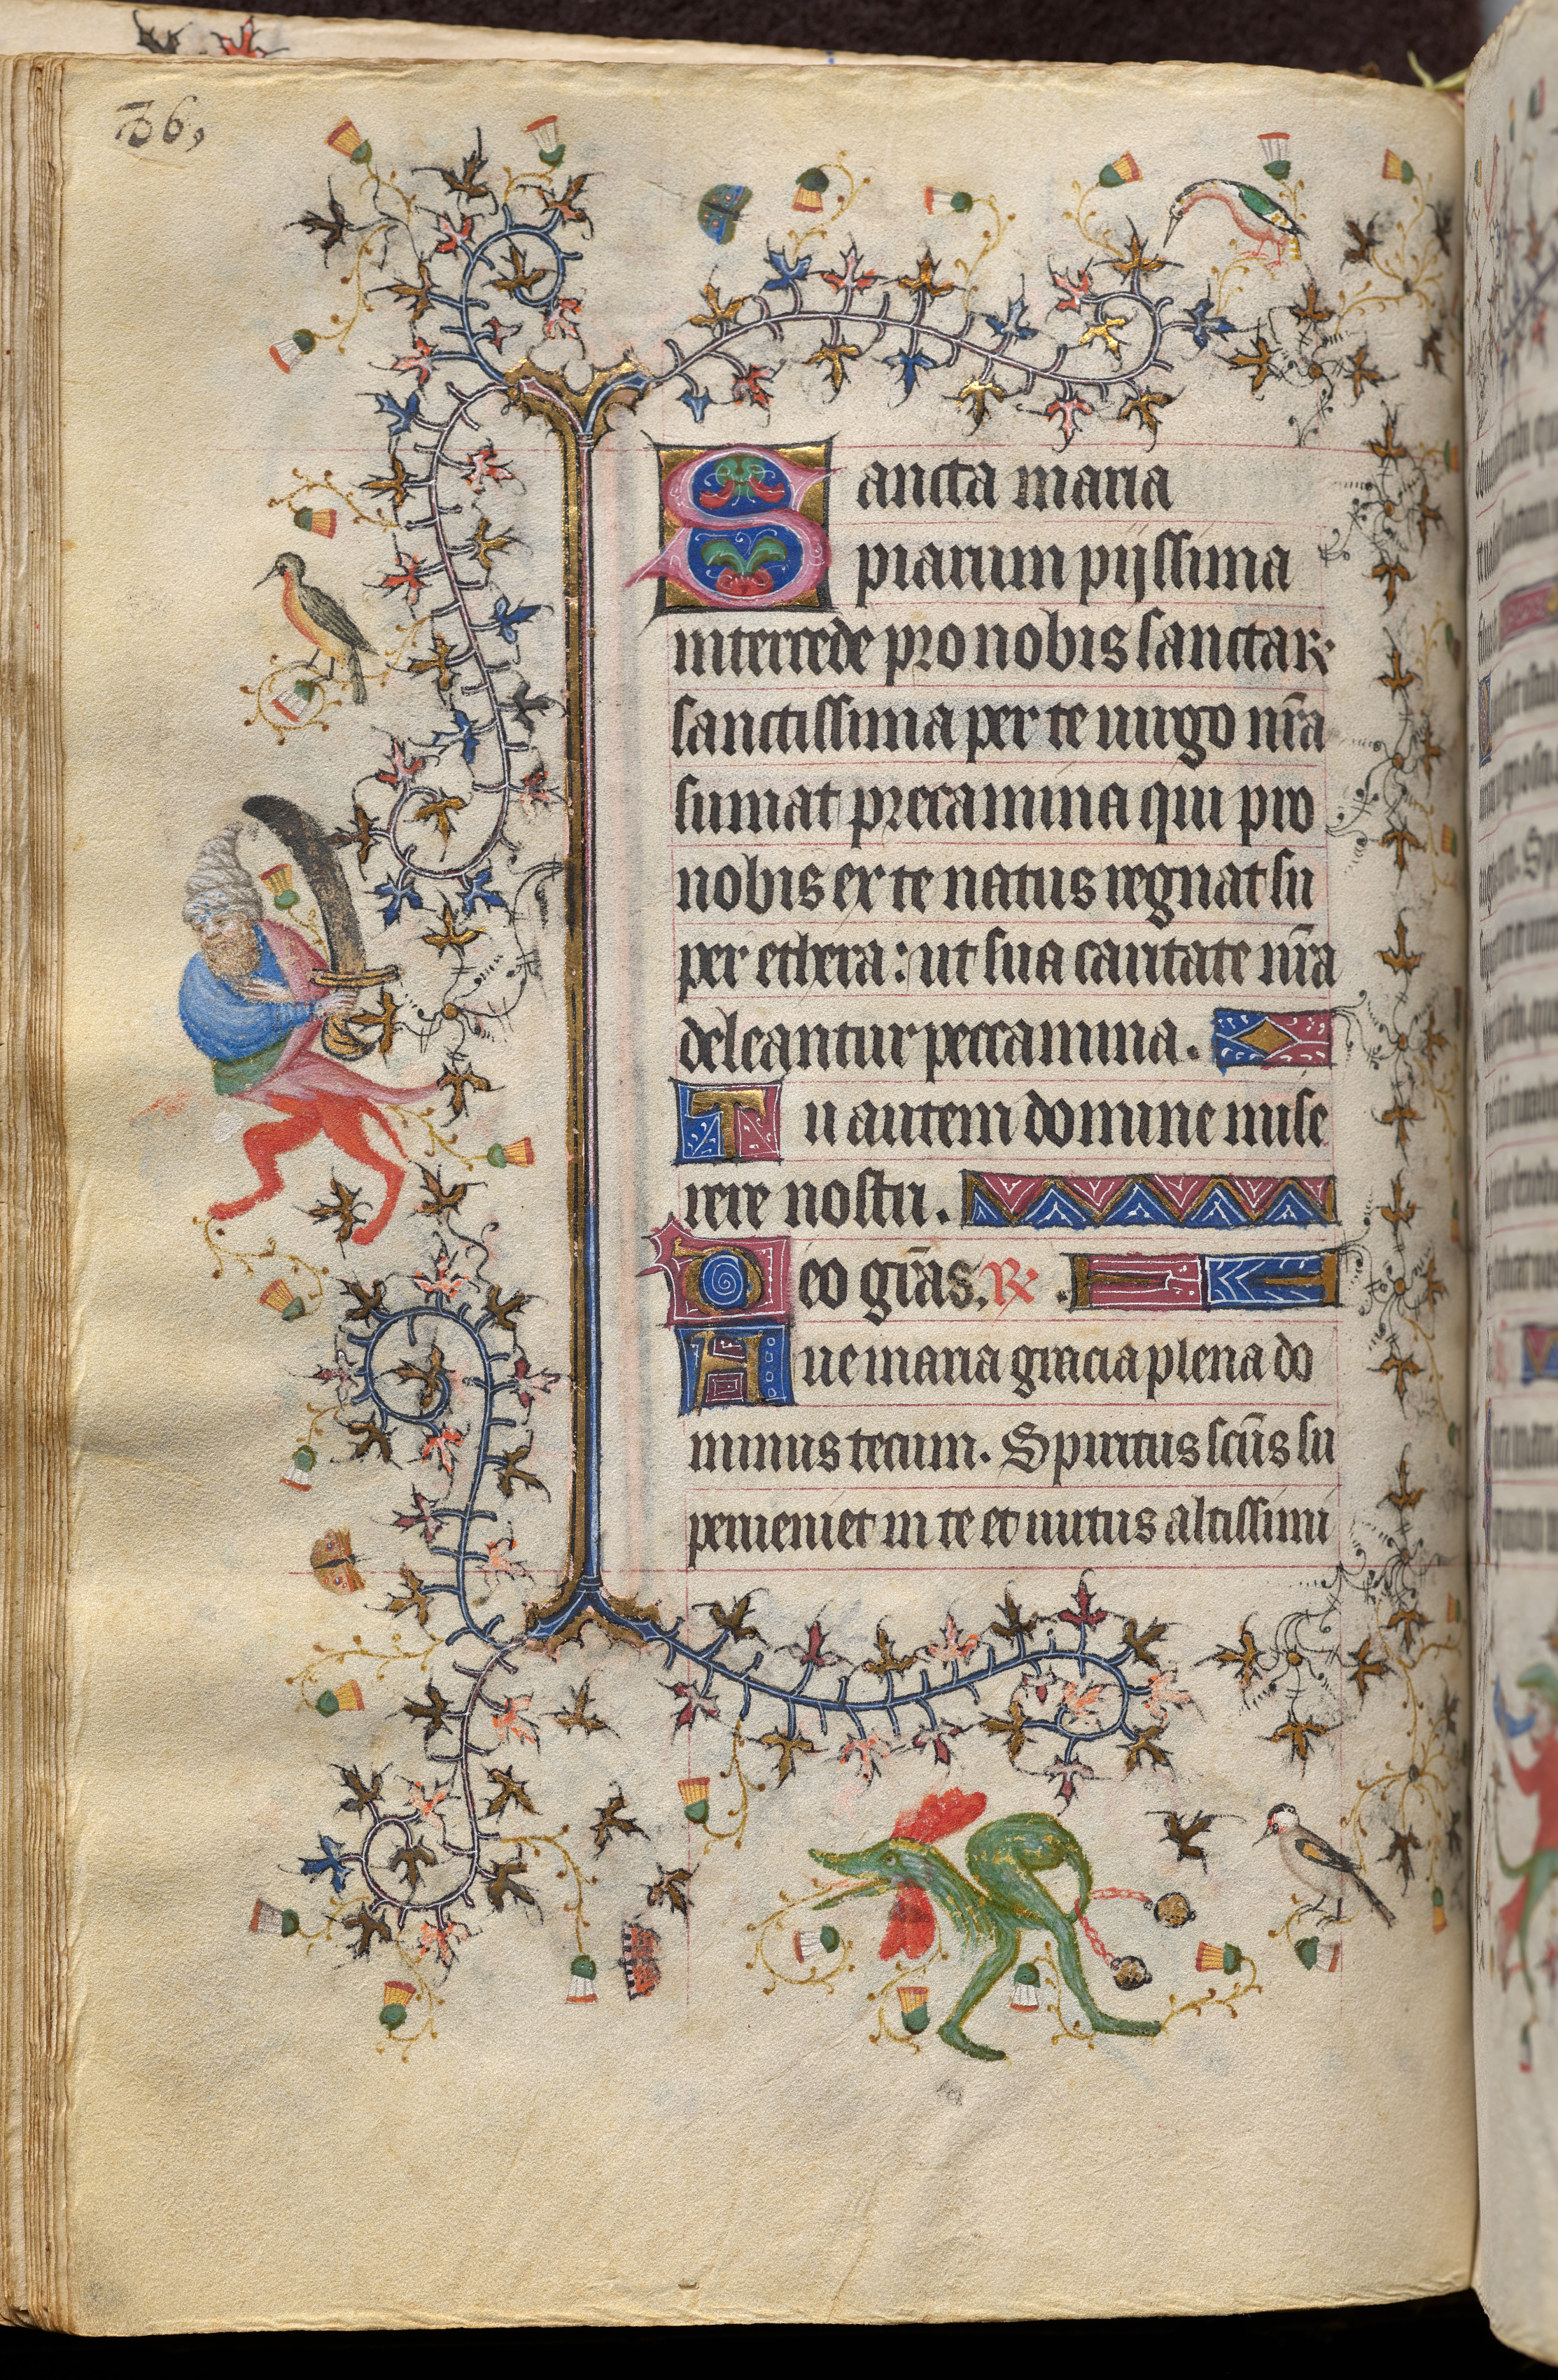 36,
Sancta maria
piarum pijssima
intercede pro nobis sanctaꝝ
sanctissima per te uirgo nr̄a
sumat precamina qui pro
nobis ex te natus regnat su
per ethera: ut sua caritate nr̄a
deleantur peccamina.
Tu autem domine mise
rere nostri.
Deo gr̄as. ℟.
Aue maria gracia plena do
minus tecum. Spiritus sc̄us su
perueniet in te et uirtus altissimi